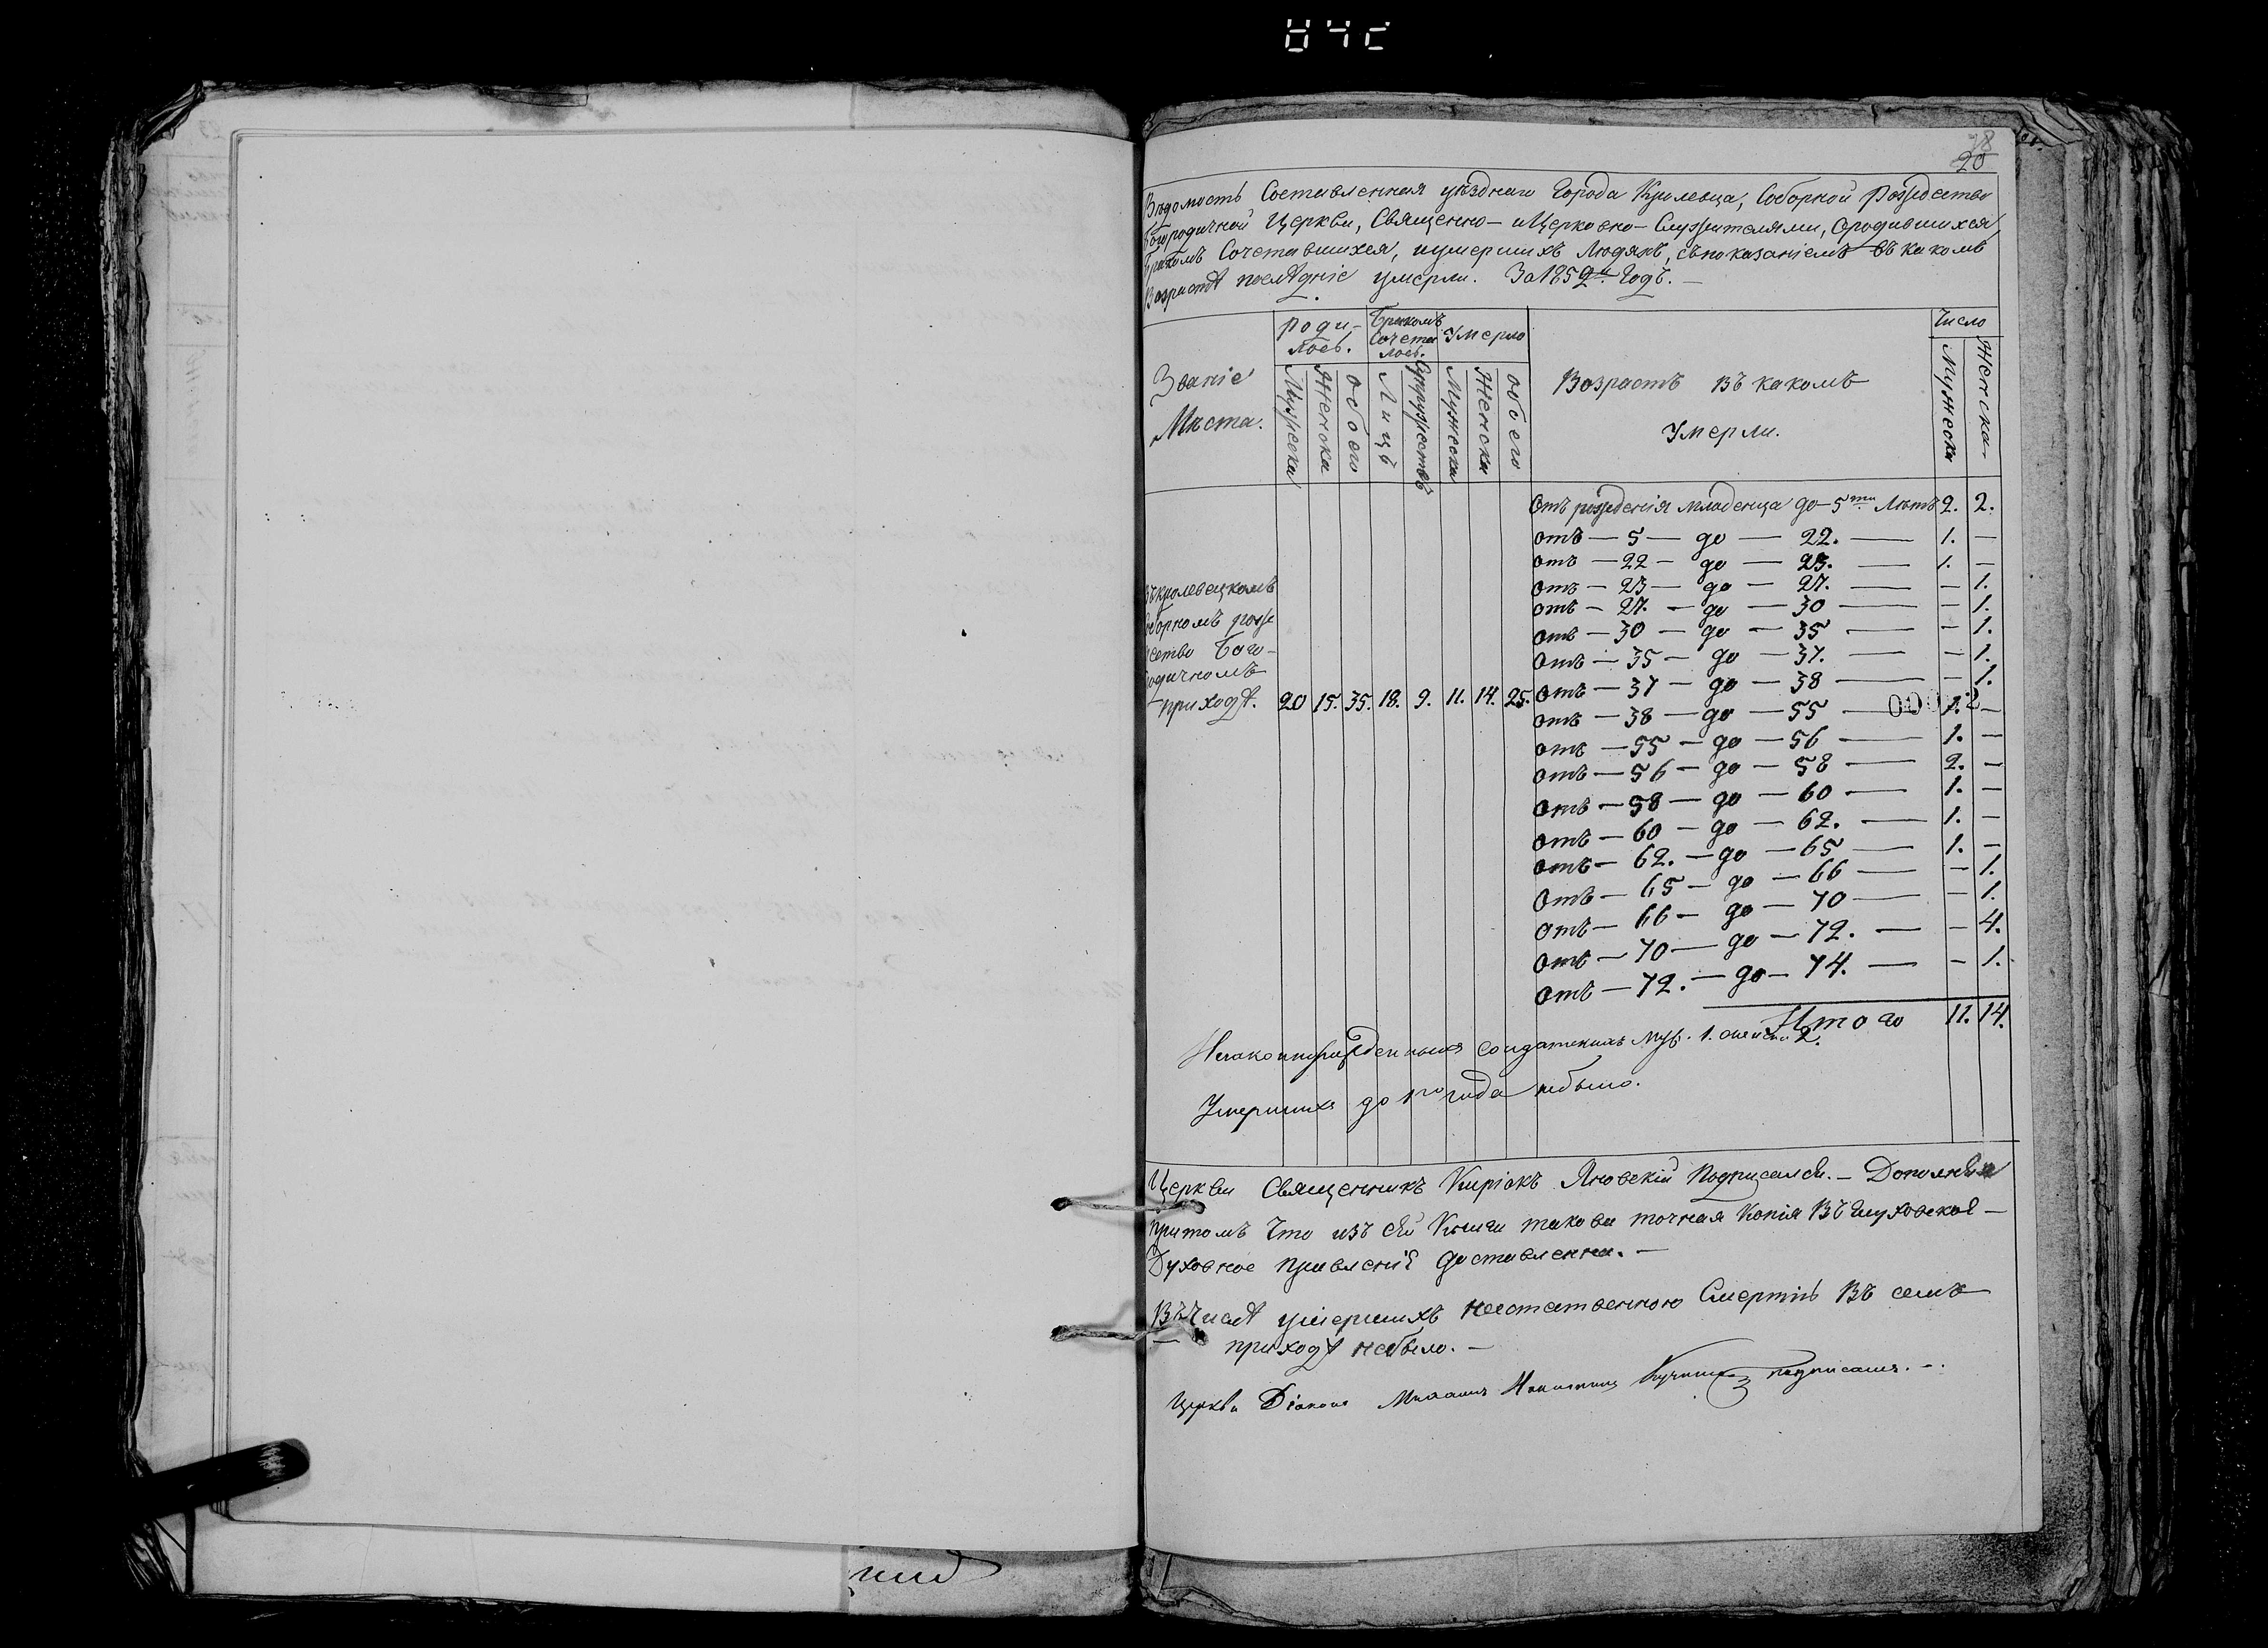 78
20
Вѣдомость Составленная уѣзднаго Города Кролевца, Соборной Рождество
Богородичной Церкви, Священно- и Церковно-Служителями, О родившихся,
Бракомъ Сочетавшихся, и умершихъ Людяхъ, съ показаніемъ въ какомъ
Возрастѣ послѣдніе умерли. За 1852й Годъ. —
Званіе
Мѣста.
Роди-
лось.
Бракомъ
Сочета
лось.
Умерло
Возрастъ въ какомъ
Умерли.
Число
Мужеска
Женска
Обоего
Лицъ
Супружествъ
Мужеска
Женска
Обоего
Мужеска
Женска
Въ кролевецкомъ
Соборномъ рож
дество Бого-
родичномъ
приходѣ. 20 15. 35. 18. 9. 11. 14. 25.
Отъ рожденія младенца до 5ти Лѣтъ 2. 2.
отъ — 5 — до — 22. — 1. —
отъ — 22 — до — 23. — 1. —
отъ — 23 — до — 27. — — 1.
отъ — 27. — до — 30 — — 1.
отъ — 30 — до — 35 — — 1.
отъ — 35 — до — 37. — — 1.
отъ — 37 — до — 38 — — 1.
отъ — 38 — до — 55 — 1. —
отъ — 55 — до — 56 — 1. —
отъ — 56 — до — 58 — 2. —
отъ — 58 — до — 60 — 1. —
отъ — 60 — до — 62. — 1. —
отъ — 62. — до — 65 — 1. —
отъ — 65 — до — 66 — — 1.
отъ — 66 — до — 70 — — 1.
отъ — 70 — до — 72. — — 4.
отъ — 72. — до — 74. — — 1.
Итого 11. 14.
солдатскихъ 1. 2.
Умершихъ до 1го года небыло.
Церкви Священникъ Киріакъ Яновскій Подписался. —
притомъ Что изъ сей Книги такова точная Копія Въ Глуховское —
Духовное Правленіе доставленна. —
Въ Числѣ умершихъ неестественною Смертію Въ семъ
— приходѣ небыло. —
Церкви Діаконъ подписался. —